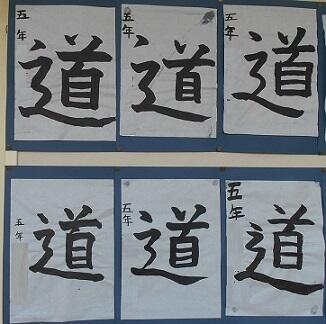 五年
道
五年
道
五年
道
五年
道
五年
道
五年
道